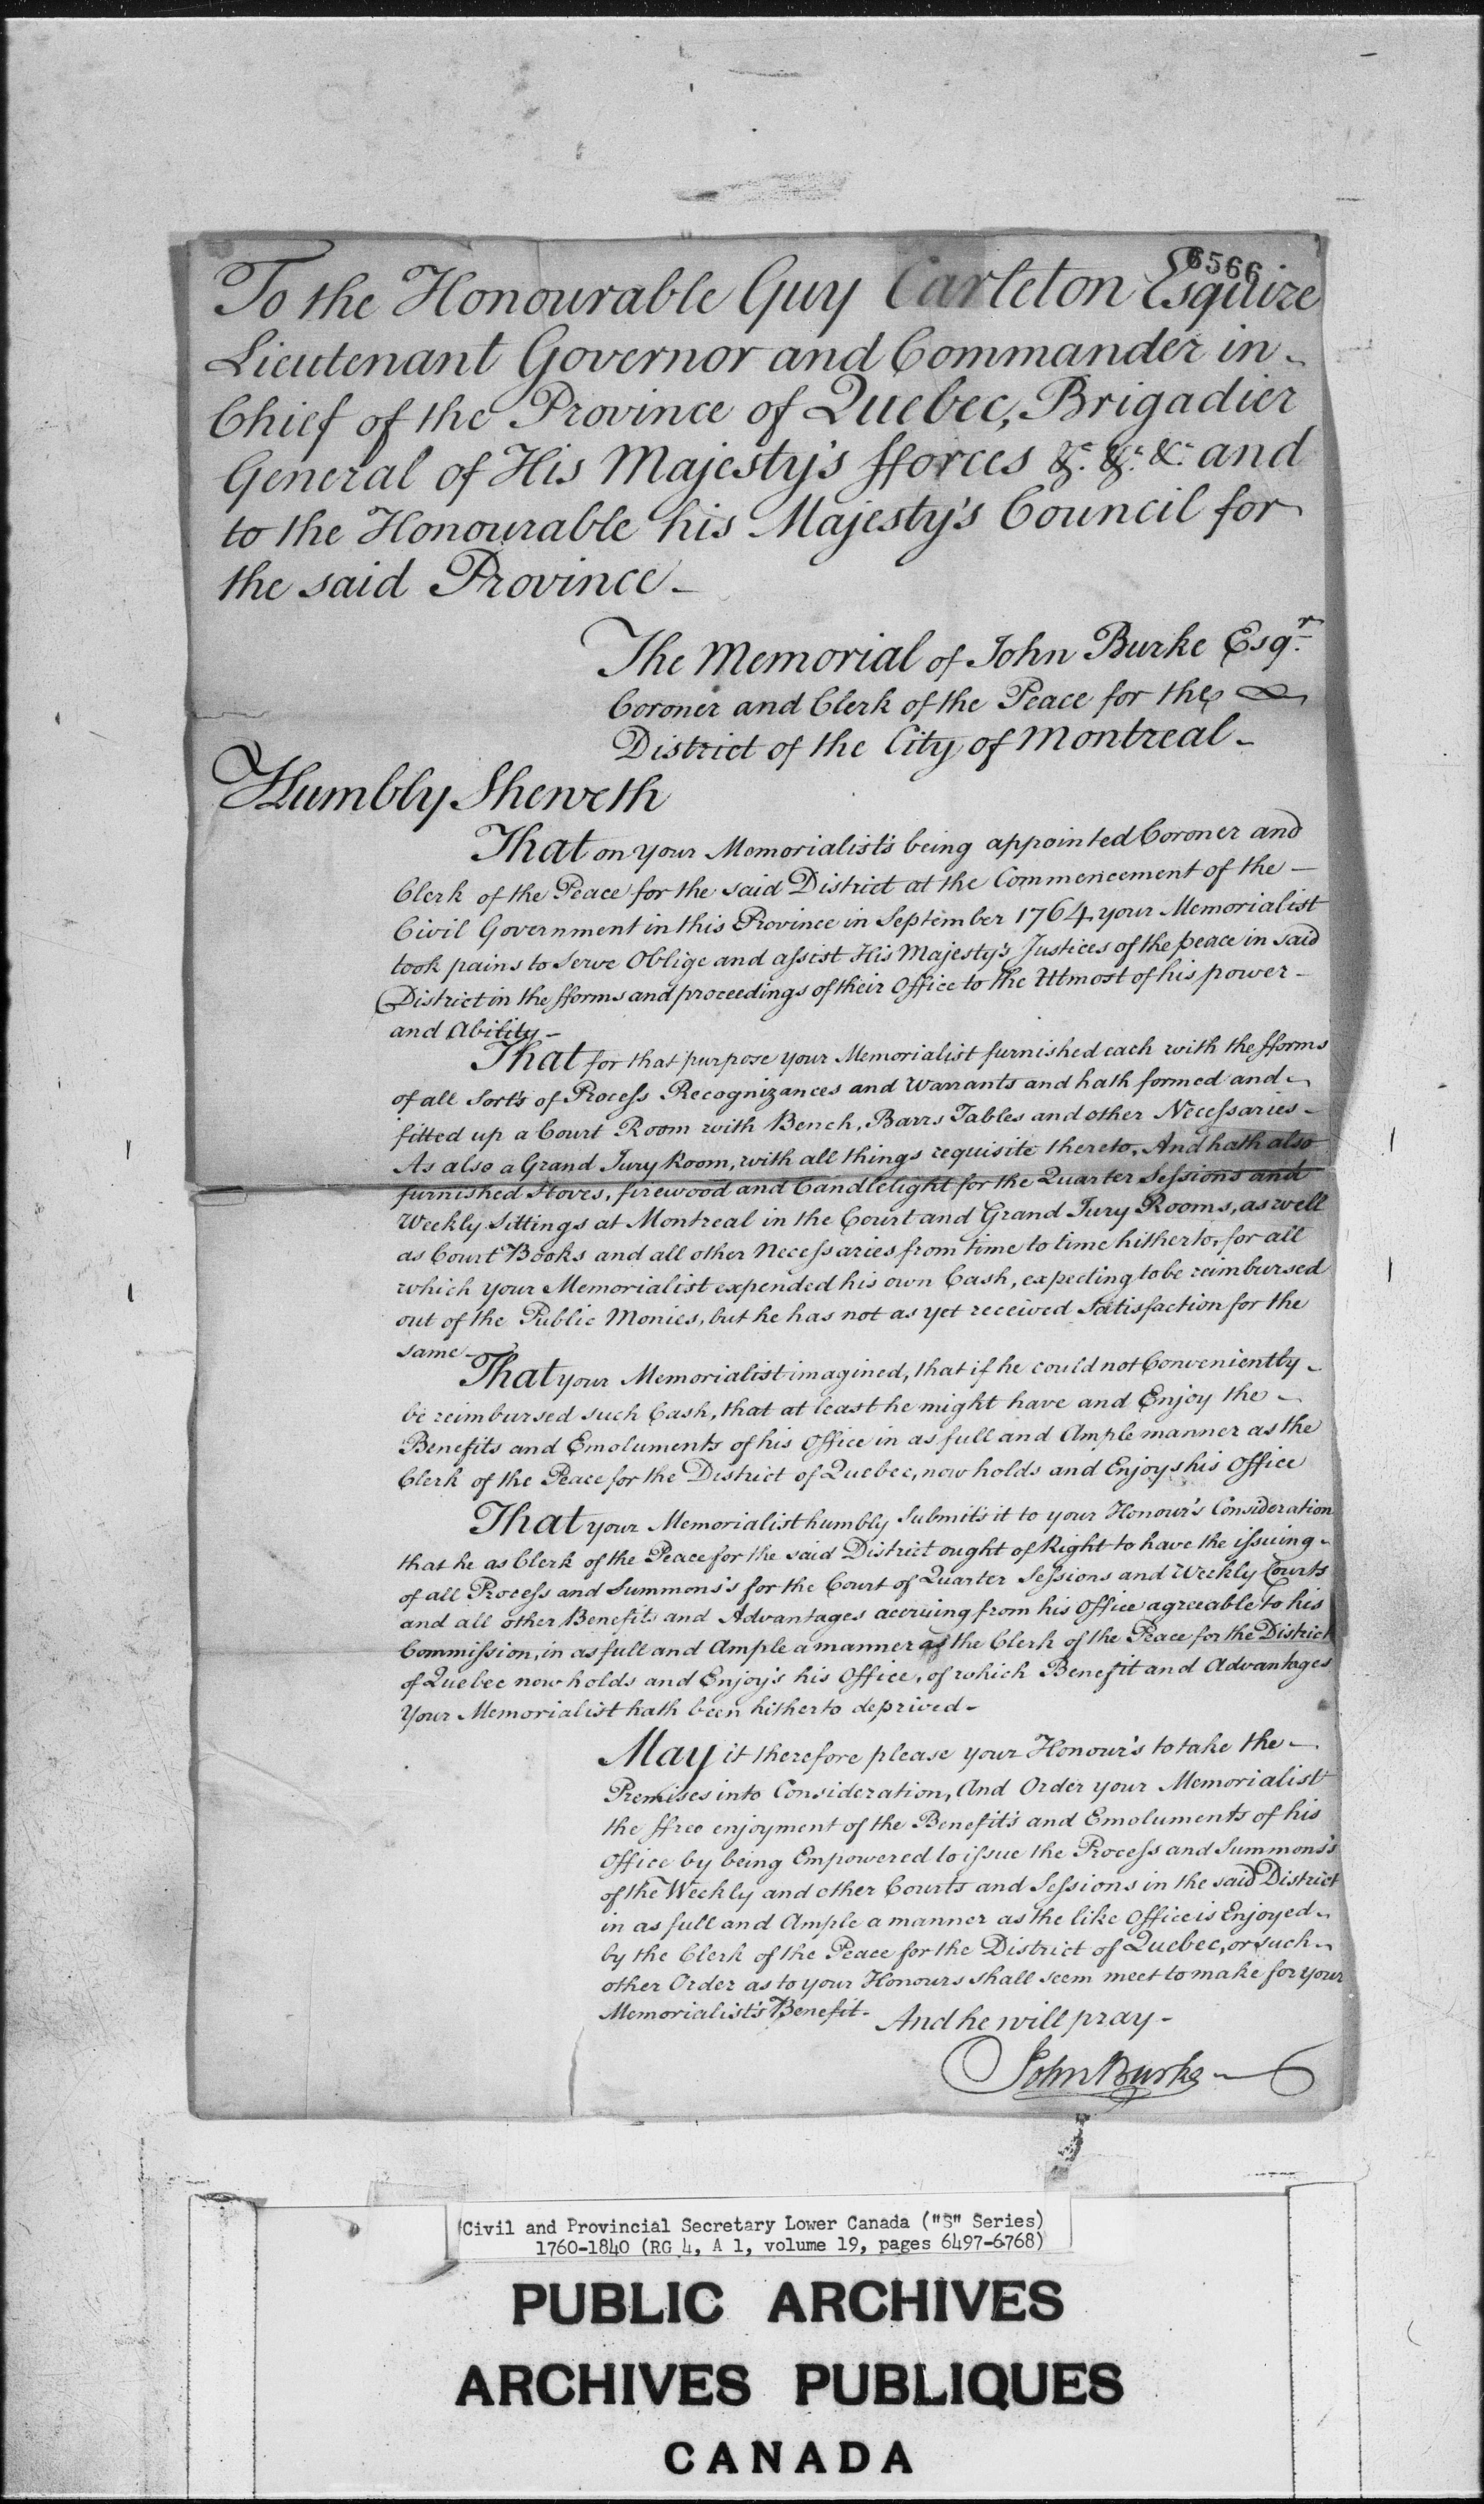 6566
To the Honourable Guy Carleton Esquire
Lieutenant Governor and Commander in
Chief of the Province of Quebec, Brigadier
General of His Majesty's fforces &c. &c. &c. and
to the Honourable his Majesty's Council for
the said Province
The Memorial of John Burke Esqr.
Coroner and Clerk of the Peace for the
District of the City of Montreal
Humbly Sheweth
That on your Memorialist's being appointed Coroner and
Clerk of the Peace for the said District at the Commencement of the
Civil Government in this Province in September 1764 your Memorialist
took pains to Serve Oblige and assist His Majesty's Justices of the peace in said
District in the fforms and proceedings of their Office to the Utmost of his power
and Ability
That for that purpose your Memorialist furnished each with the fforms
of all Sorts of Process Recognizances and Warrants and hath formed and
fitted up a Court Room with Bench, Barrs Tables and other Necessaries
As also a Grand Jury Room, with all things requisite thereto, And hath also
furnished Stoves, firewood and Candlelight for the Quarter Sessions and
Weekly Sittings at Montreal in the Court and Grand Jury Rooms, as well
as Court Books and all other Necessaries from time to time hitherto, for all
which your Memorialist expended his own Cash, expecting to be reimbursed
out of the Public Monies, but he has not as yet received Satisfaction for the
same
That your Memorialist imagined, that if he could not Conveniently
be reimbursed such Cash, that at least he might have and Enjoy the
Benefits and Emoluments of his Office in as full and Ample manner as the
Clerk of the Peace for the District of Quebec, now holds and Enjoys his Office
That your Memorialist humbly Submits it to your Honour's Consideration
that he as Clerk of the Peace for the said District ought of Right to have the issuing
of all Process and Summons's for the Court of Quarter Sessions and Weekly Courts
and all other Benefits and Advantages accruing from his Office agreeable to his
Commission, in as full and Ample a manner as the Clerk of the Peace for the District
of Quebec now holds and Enjoy's his Office, of which Benefit and Advantages
Your Memorialist hath been hitherto deprived
May it therefore please your Honour's to take the
Premises into Consideration, And Order your Memorialist
the ffree enjoyment of the Benefit's and Emoluments of his
Office by being Empowered to issue the Process and Summons's
of the Weekly and other Courts and Sessions in the said District
in as full and Ample a manner as the like Office is Enjoyed
by the Clerk of the Peace for the District of Quebec, or such
other Order as to your Honours shall seem meet to make for your
Memorialist's Benefit. And he will pray
John Burke
Civil and Provincial Secretary Lower Canada ("S" Series)
1760-1840 (RG 4, A 1, volume 19, pages 6497-6768)
PUBLIC ARCHIVES
ARCHIVES PUBLIQUES
CANADA